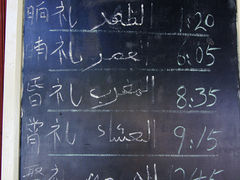 晌礼 الظهر 1:20
晡礼 العصر 6:05
昏礼 المغرب 8:35
宵礼 العشاء 9:15